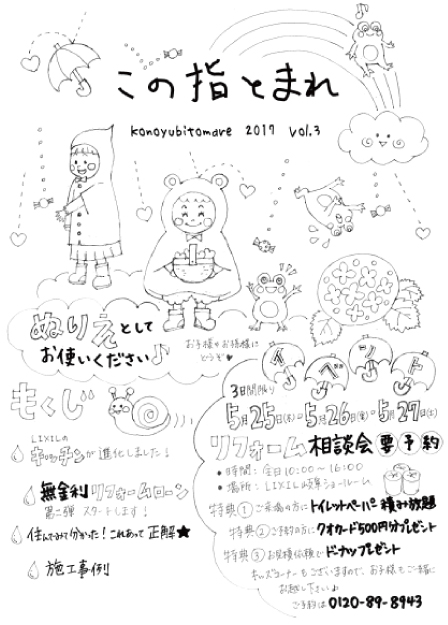 この指とまれ
konoyubitomare 2017 vol.3
ぬりえとして
お使いください♪
お子様やお孫様に
どうぞ♥
もくじ
LIXILの
キッチンが進化しました!
無金利リフォームローン
第二弾 スタートします!
住んでみて分かった!これあって正解★
施工事例
イベント
3日間限り
5月25日(木)〜5月26日(金)・5月27日(土)
リフォーム相談会 要予約
●時間: 全日10:00〜16:00
●場所: LIXIL ショールーム
特典① ご来場の方に トイレットペーパー積み放題
特典② ご予約の方に クオカード500円分プレゼント
特典③ お見積依頼で ドーナツプレゼント
キッズコーナーもございますので、お子様もご一緒に
お越し下さい♪
ご予約は 0120-89-8943